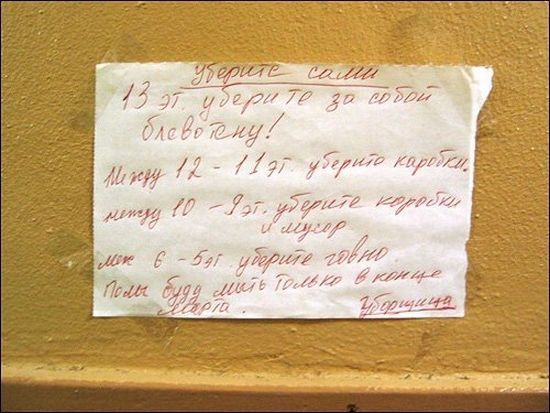 Уберите сами
13 эт. уберите за собой
блевотену!
Между 12 - 11 эт. уберите каробки.
между 10 - 9 эт. уберите коробки
и мусор
меж 6 - 5 эт. уберите говно.
Полы буду мыть только в конце
Марта. Уборщица